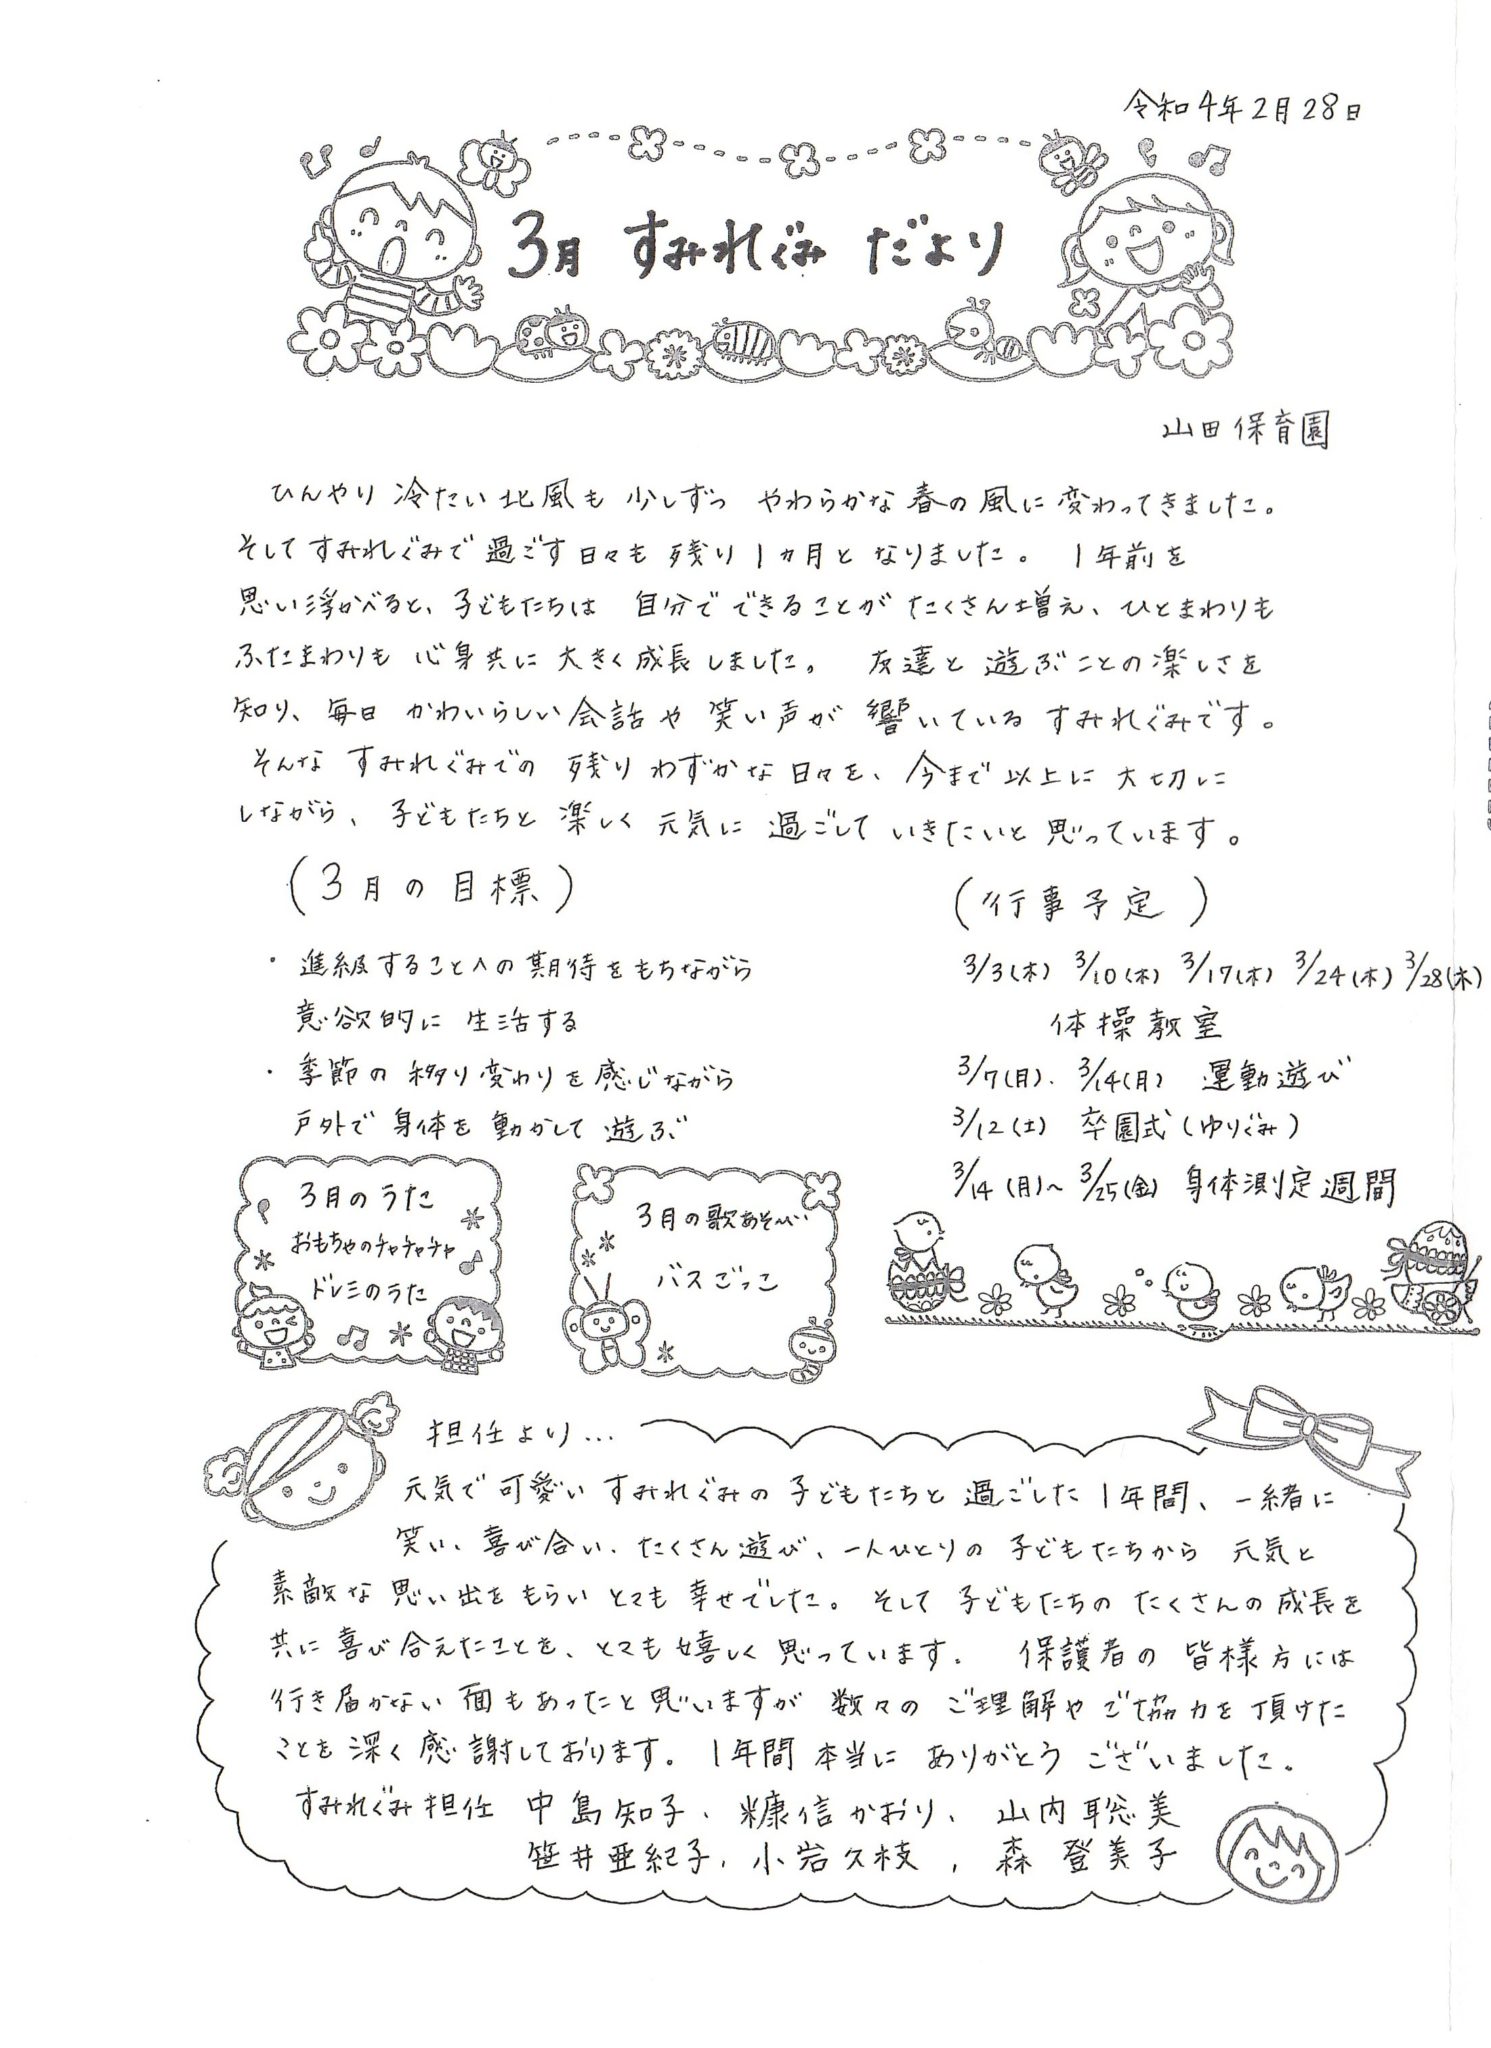 令和4年2月28日
3月 すみれぐみ だより
山田保育園
ひんやり 冷たい 北風も 少しずつ やわらかな 春の 風に 変わってきました。
そして すみれぐみで 過ごす 日々も 残り 1ヵ月と なりました。 1年前を
思い浮かべると、子どもたちは 自分で できることが たくさん 増え、ひとまわりも
ふたまわりも 心身共に 大きく成長しました。 友達と 遊ぶことの楽しさを
知り、毎日 かわいらしい 会話や 笑い声が 響いている すみれぐみです。
そんな すみれぐみでの 残り わずかな 日々を、今まで 以上に 大切に
しながら、子どもたちと 楽しく 元気に 過ごして いきたいと 思っています。
(3月の目標)
・進級することへの 期待をもちながら
意欲的に 生活する
・季節の 移り変わりを感じながら
戸外で 身体を 動かして 遊ぶ
(行事予定)
3/3(木) 3/10(木) 3/17(木) 3/24(木) 3/28(木)
体操教室
3/7(月)、3/14(月) 運動遊び
3/12(土) 卒園式(ゆりぐみ)
3/14(月)~ 3/25(金) 身体測定週間
3月のうた
おもちゃのチャチャチャ
ドレミのうた
3月の歌あそび
バスごっこ
担任より...
元気で 可愛い すみれぐみの 子どもたちと 過ごした 1年間、一緒に
笑い、喜び合い、たくさん 遊び、一人ひとりの 子どもたちから 元気と
素敵な 思い出を もらい とても 幸せでした。そして 子どもたちの たくさんの成長を
共に 喜び 合えたことを、とても 嬉しく 思っています。 保護者の 皆様方には
行き届かない 面もあったと 思いますが 数々の ご理解や ご協力を 頂けた
ことを 深く 感謝しております。1年間 本当に ありがとう ございました。
すみれぐみ担任 中島知子、糠信かおり、山内聡美
笹井亜紀子、小岩久枝、森 登美子